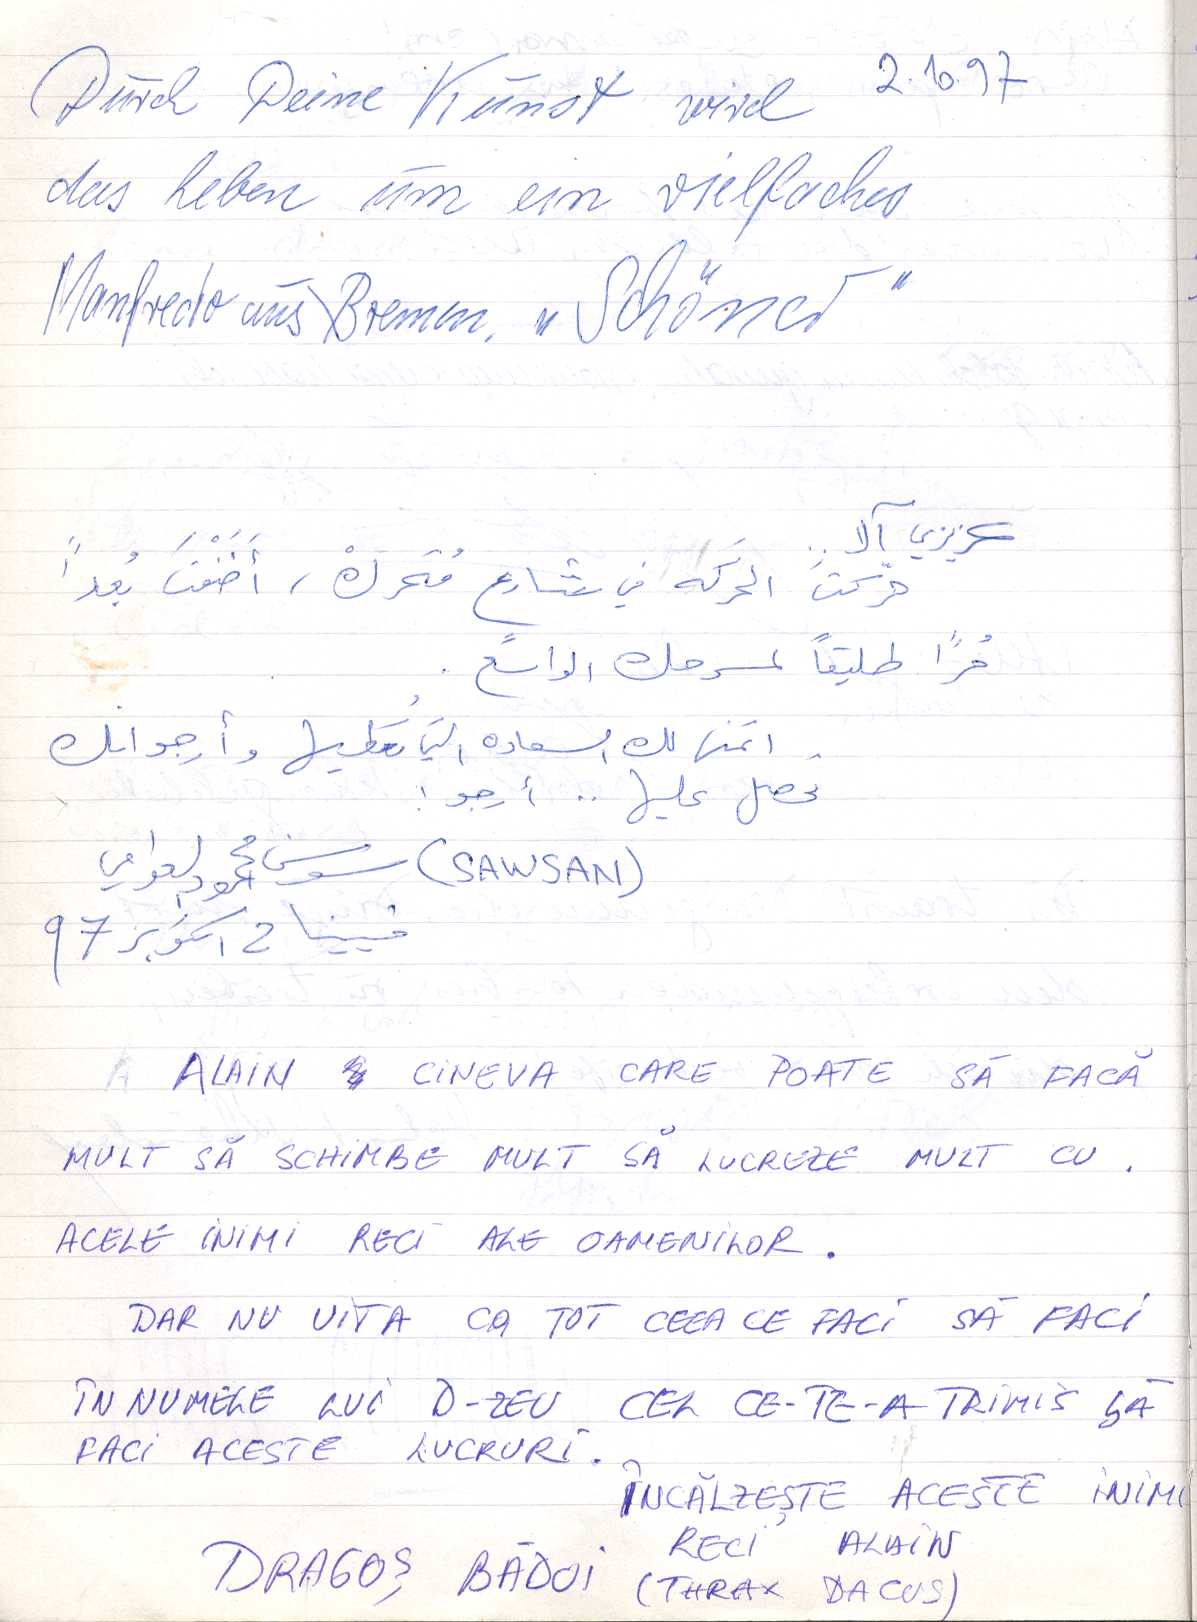 Durch Deine Kunst wird 2.10.97
das Leben um ein vielfaches
Manfredo aus Bremen. „Schöner"
عزيزي آلا ..
حرّكتَ الحركه في شارع مُتحركْ، أَضَفْتَ بُعداً
حُرّاً طليقاً لمسرحك الواسع.
اتمنى لك السعاده التي تُعطيها وأرجو انك
تحصل عليها .. أرجو!
سوسن محمود العوامي (SAWSAN)
فيينا 2 اكتوبر 97
ALAIN CINEVA CARE POATE SĂ FACĂ
MULT SĂ SCHIMBE MULT SĂ LUCREZE MULT CU.
ACELE INIMI RECI ALE OAMENILOR.
DAR NU UITA CĂ TOT CEEA CE FACI SĂ FACI
ÎN NUMELE LUI D-ZEU CEL CE-TE-A TRIMIS SĂ
FACI ACESTE LUCRURI.
ÎNCĂLZEȘTE ACESTE INIMI
RECI ALAIN
DRAGOȘ BĂDOI (THRAX DACUS)